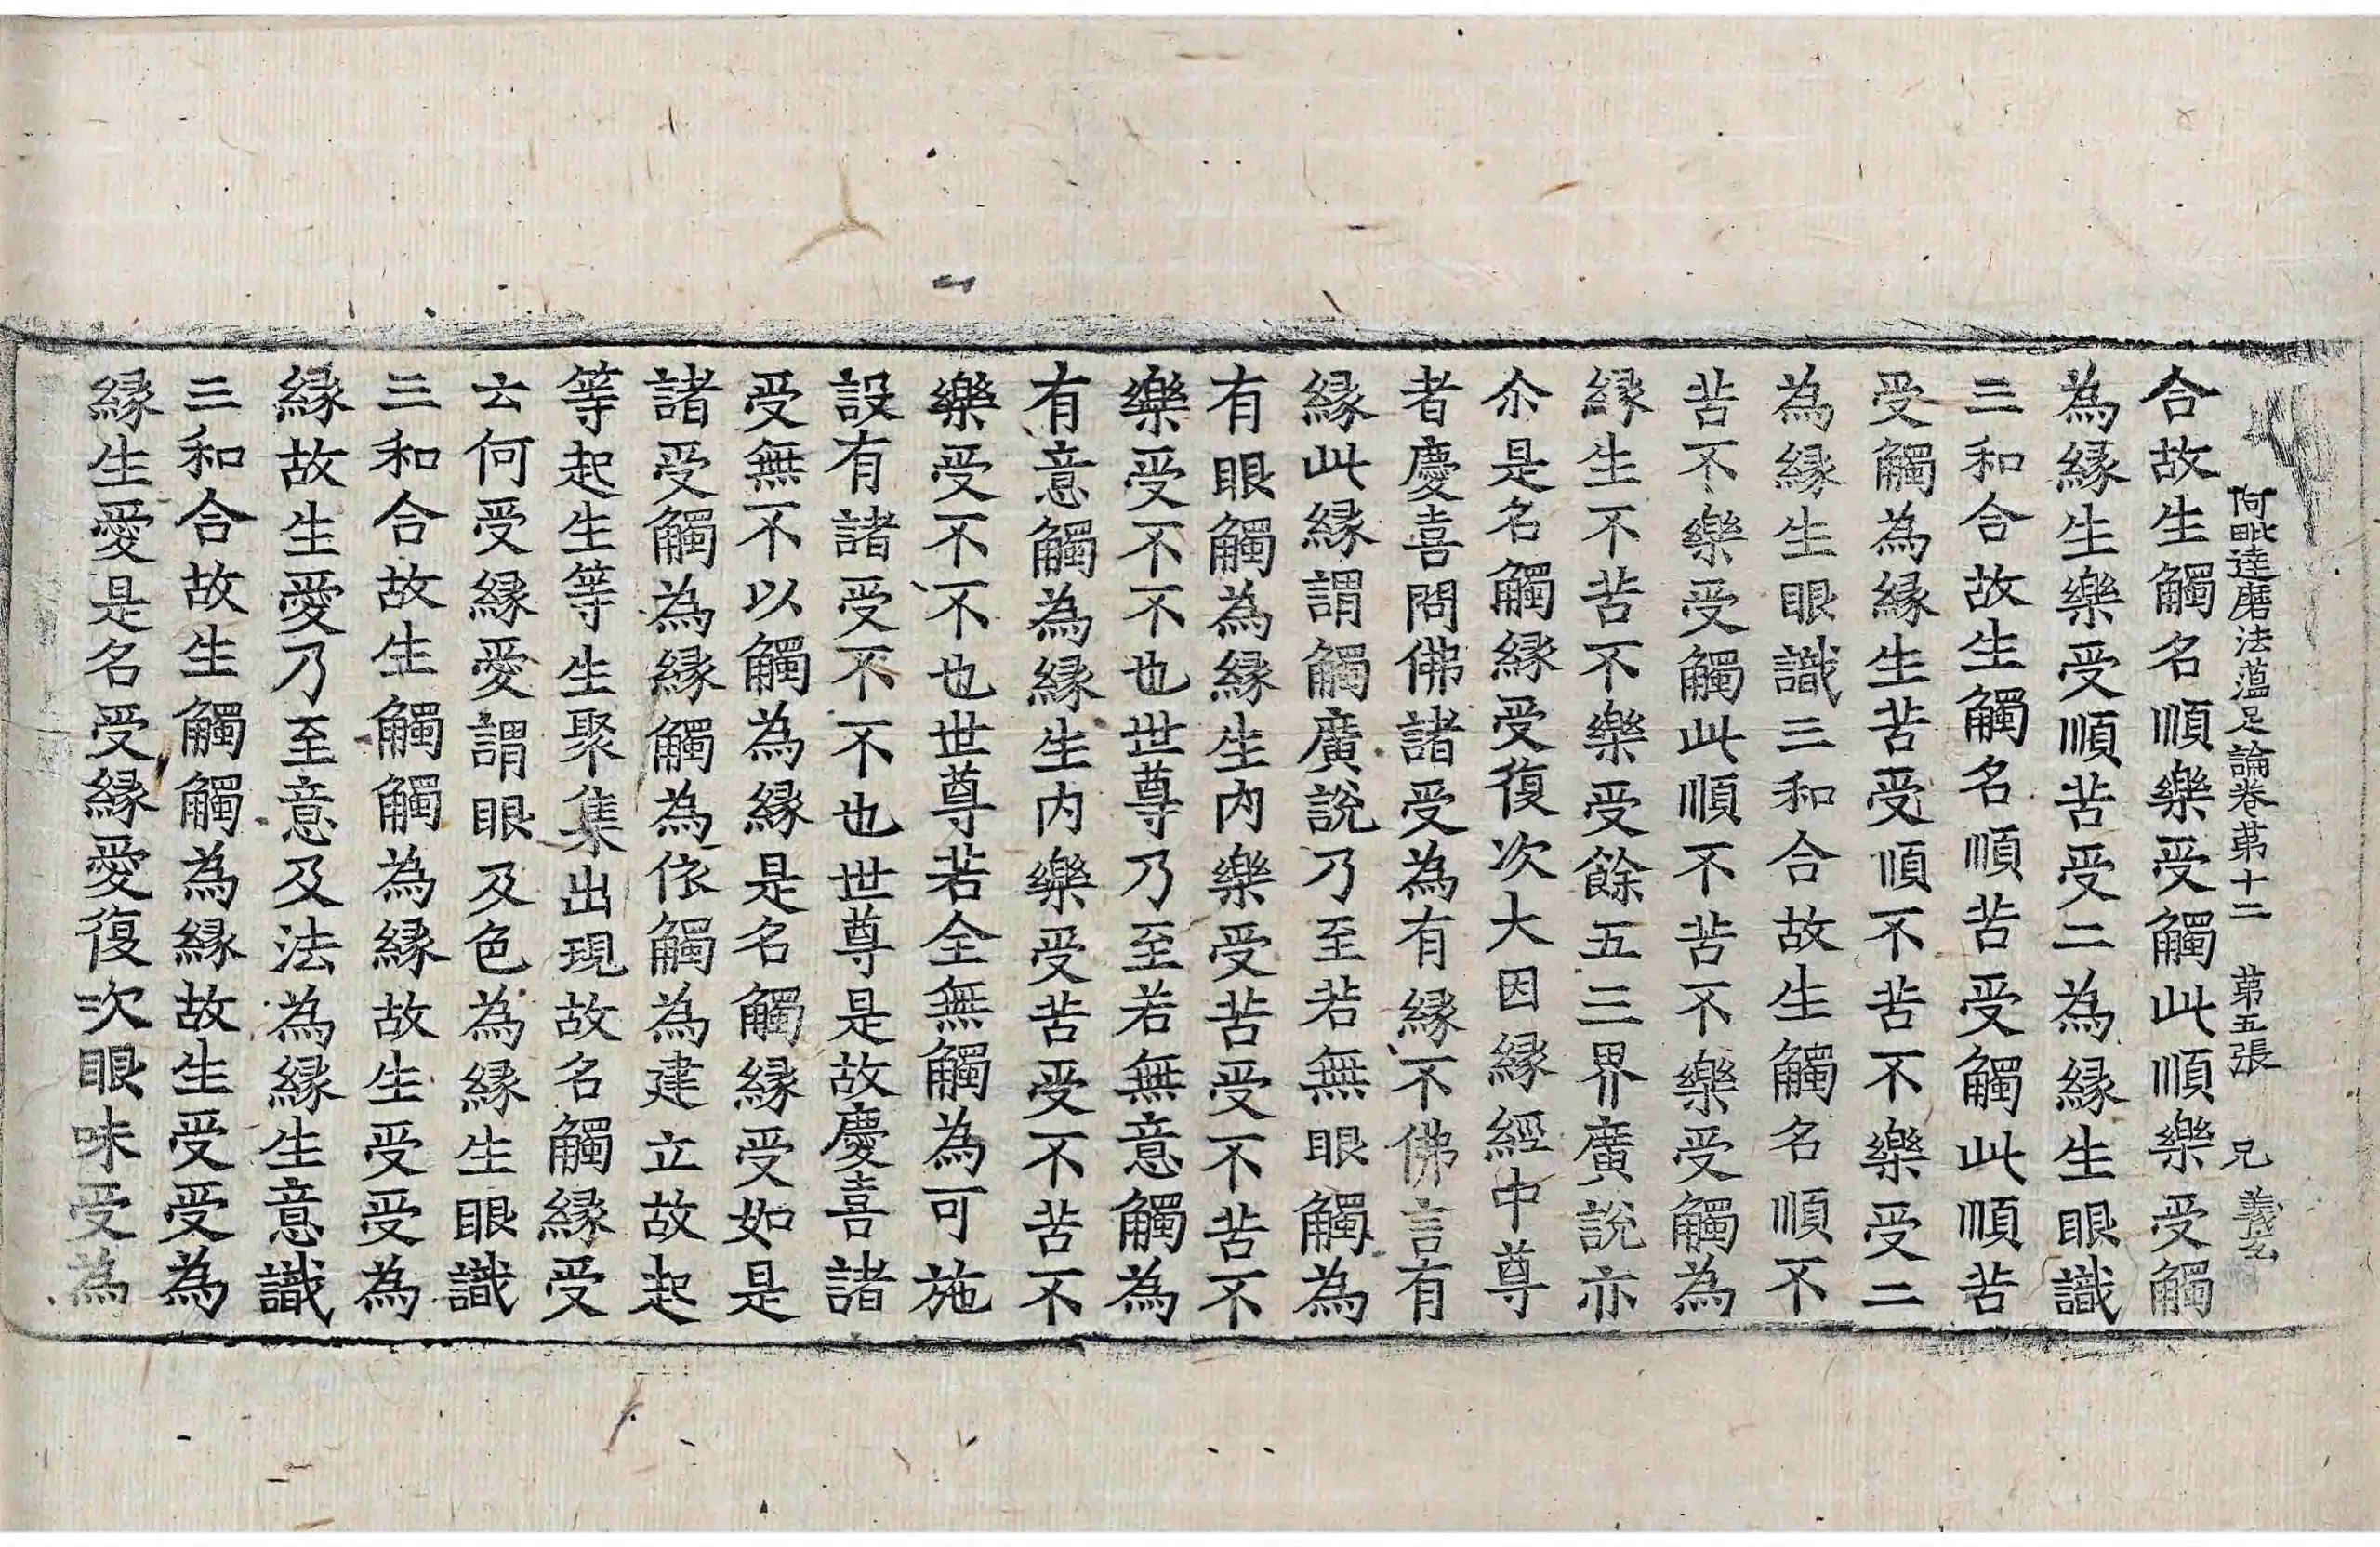 阿毗達磨法蘊足論卷第十二　第五張　兄　義玄
合故生觸名順樂受觸此順樂受觸
為緣生樂受順苦受二為緣生眼識
三和合故生觸名順苦受觸此順苦
受觸為緣生苦受順不苦不樂受二
為緣生眼識三和合故生觸名順不
苦不樂受觸此順不苦不樂受觸為
緣生不苦不樂受餘五三界廣說亦
尒是名觸緣受復次大因緣經中尊
者慶喜問佛諸受為有緣不佛言有
緣此緣謂觸廣說乃至若無眼觸為
有眼觸為緣生內樂受苦受不苦不
樂受不不也世尊乃至若無意觸為
有意觸為緣生內樂受苦受不苦不
樂受不不也世尊若全無觸為可施
設有諸受不不也世尊是故慶喜諸
受無不以觸為緣是名觸緣受如是
諸受觸為緣觸為依觸為建立故起
等起生等生聚集出現故名觸緣受
云何受緣愛謂眼及色為緣生眼識
三和合故生觸觸為緣故生受受為
緣故生愛乃至意及法為緣生意識
三和合故生觸觸為緣故生受受為
緣生愛是名受緣愛復次眼味受為